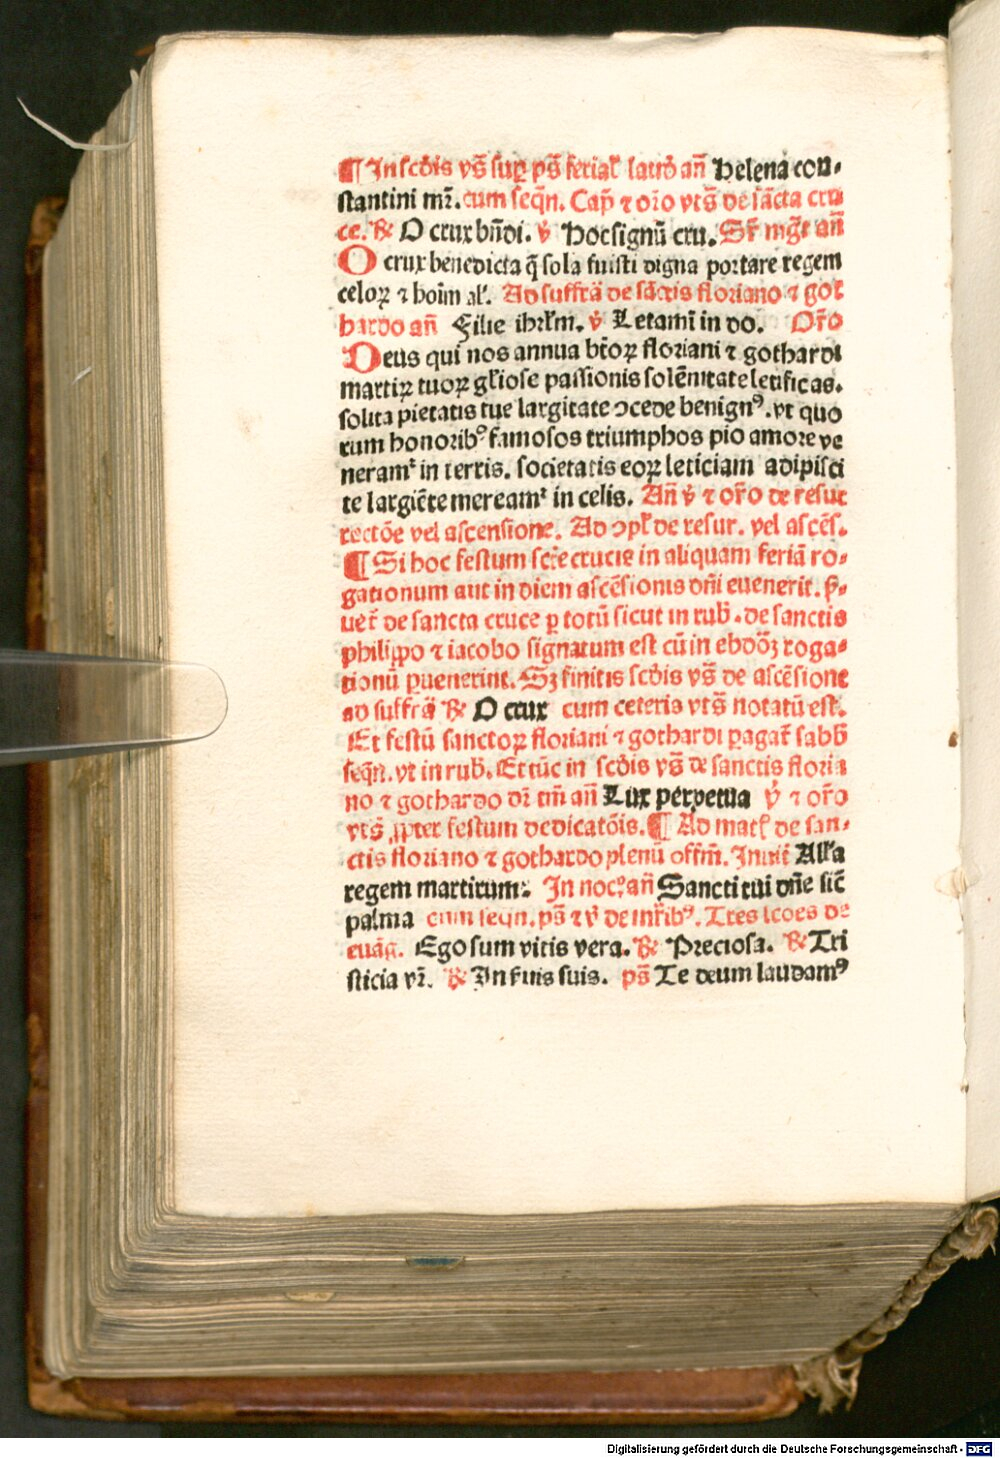 ¶ In scďis vs̄ suꝑ ps̄ ferial' laud an̄ Helena con-
stantini mr̄. cum seqn̄. Cap̄ ⁊ oro vts̄ de sācta cru
ce. ℟ O crux bn̄di. v̄ Hoc signū cru. Sr̄ mgr̄ an̄
O crux benedicta q̄ sola fuisti digna portare regem
celoꝝ ⁊ hoīm al'. Ad suffrā de sāctis floriano ⁊ got
hardo an̄ Filie ihrlm. v̄ Letami in do. Oro
Deus qui nos annua btōꝝ floriani ⁊ gothardi
martiꝝ tuoꝝ gliose passionis solēnitate letificas.
solita pietatis tue largitate ꝯcede benignꝰ. vt quo
rum honoribꝰ famosos triumphos pio amore ve
neramᷣ in terris. societatis eoꝝ leticiam adipisci
te largiēte mereamᷣ in celis. An̄ v̄ ⁊ oro de resur
rectōe vel ascensione. Ad ꝯpl' de resur. vel ascēs.
¶ Si hoc festum scē crucis in aliquam feriā ro-
gationum aut in diem ascēsionis dn̄i euenerit. p̄-
uer̄t de sancta cruce ꝑ totū sicut in rub̄. de sanctis
philippo ⁊ iacobo signatum est cū in ebdōꝫ roga-
tionū ꝑuenerint. Sꝫ finitis scďis vs̄ de ascēsione
ad suffrā ℟ O crux cum ceteris vts̄ notatū est.
Et festū sanctoꝝ floriani ⁊ gothardi ꝑagat̄ sabb̄
seqn̄. vt in rub̄. Et tūc in scďis vs̄ de sanctis floria
no ⁊ gothardo dr̄ tm̄ an̄ Lux perpetua v̄ ⁊ oro
vts̄ ꝓpter festum dedicatōis. ¶ Ad mat' de san-
ctis floriano ⁊ gothardo plenū offm̄. Inuit̄ Alla
regem martirum. In nocꝰ. an̄ Sancti tui dn̄e sic̄
palma cum seqn̄. ps̄ ⁊ v̄ de mr̄ibꝰ. Tres lcōes de
euāg. Ego sum vitis vera. ℟ Preciosa. ℟ Tri
sticia vr̄. ℟ In suis suis. ps̄ Te deum laudamꝰ
Digitalisierung gefördert durch die Deutsche Forschungsgemeinschaft - DFG